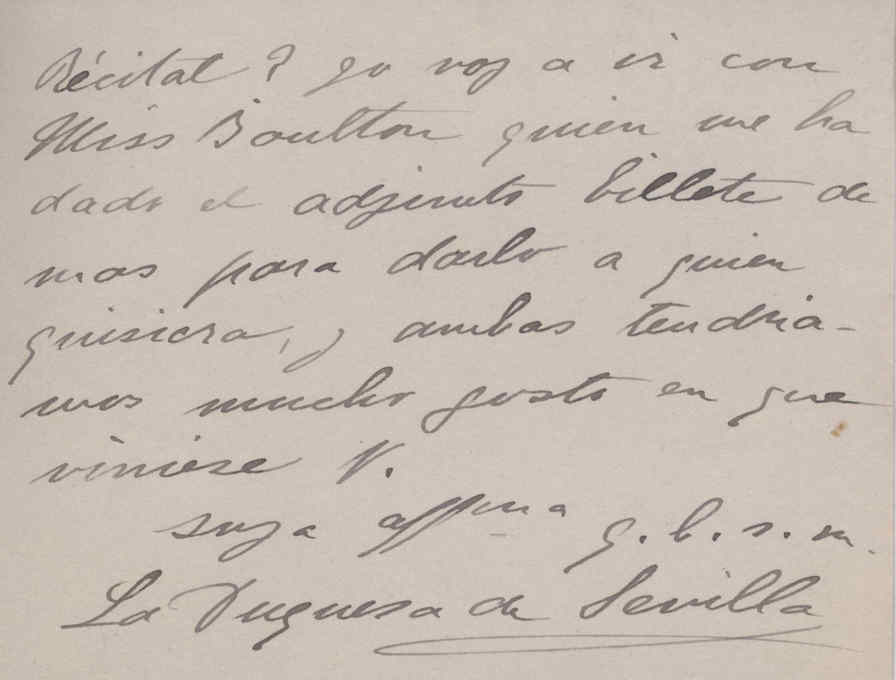 Récital? yo voy a ir con
Miss Boulton quien me ha
dado el adjunto billete de
mas para darlo a quien
quisiera, y ambas tendria-
mos mucho gusto en que
viniese V.
suya affma q. b. s. m.
La Duquesa de Sevilla